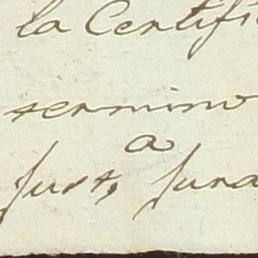 la Certifi
termino
a
Just, Jura